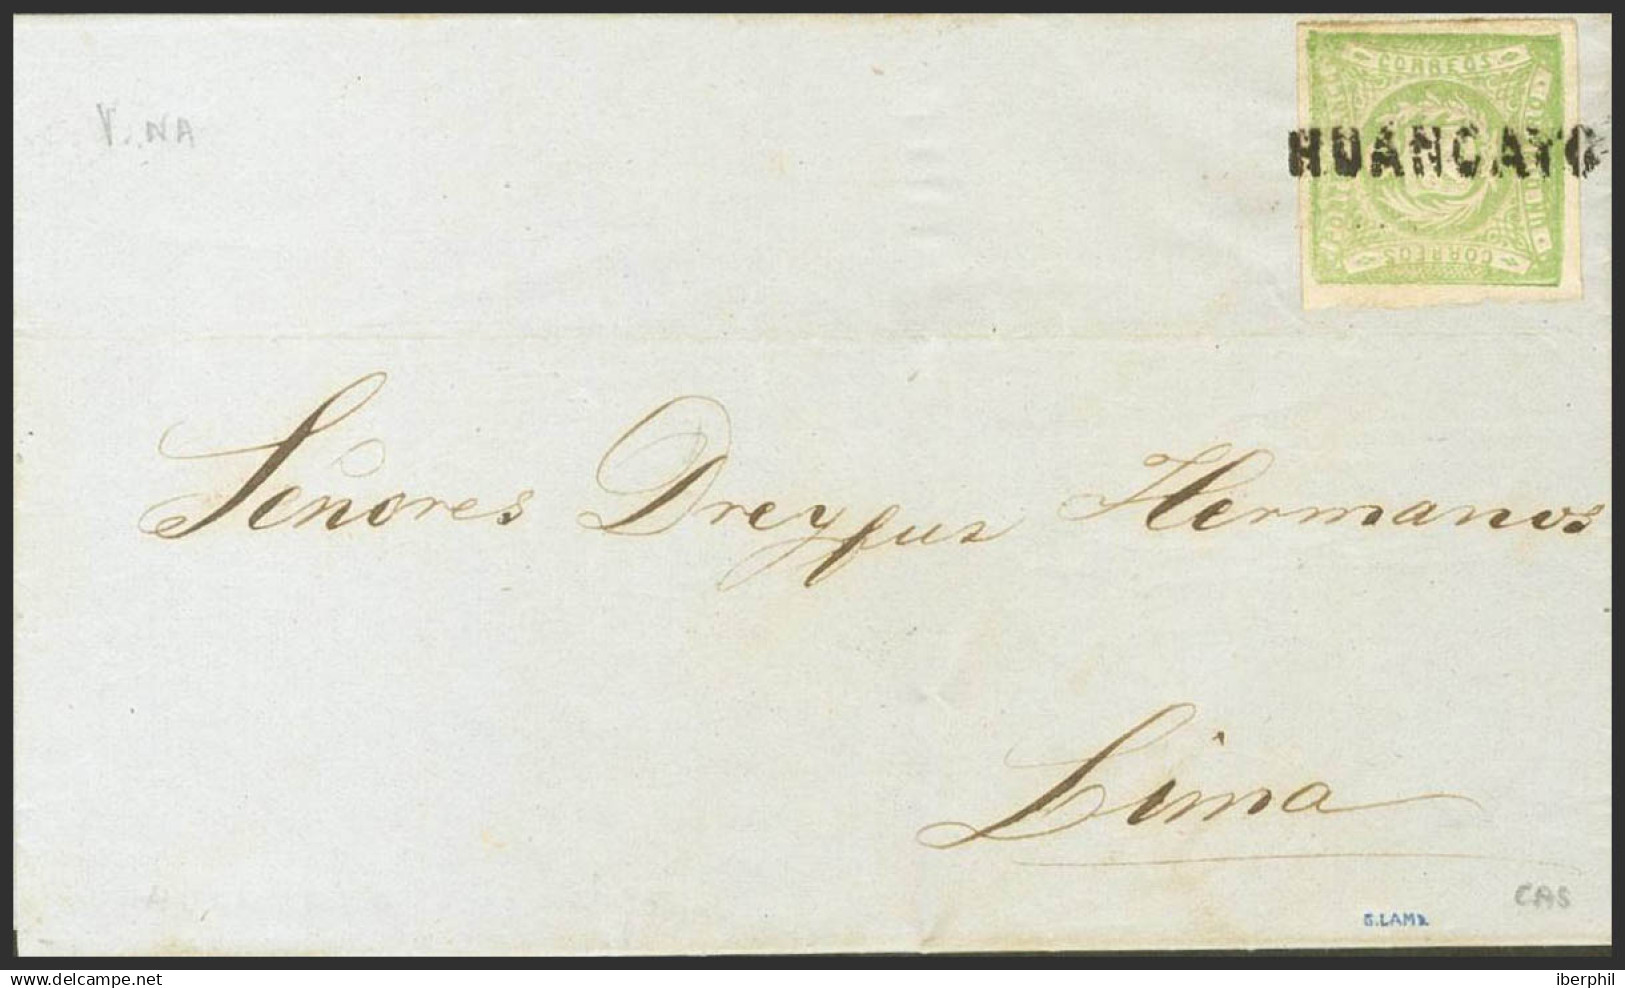 CORREOS
HUANCAYO
CORREOS
V. NA
Señores Dreyfus Hermanos
Lima
CAS
www.delcampe.net
iberphil